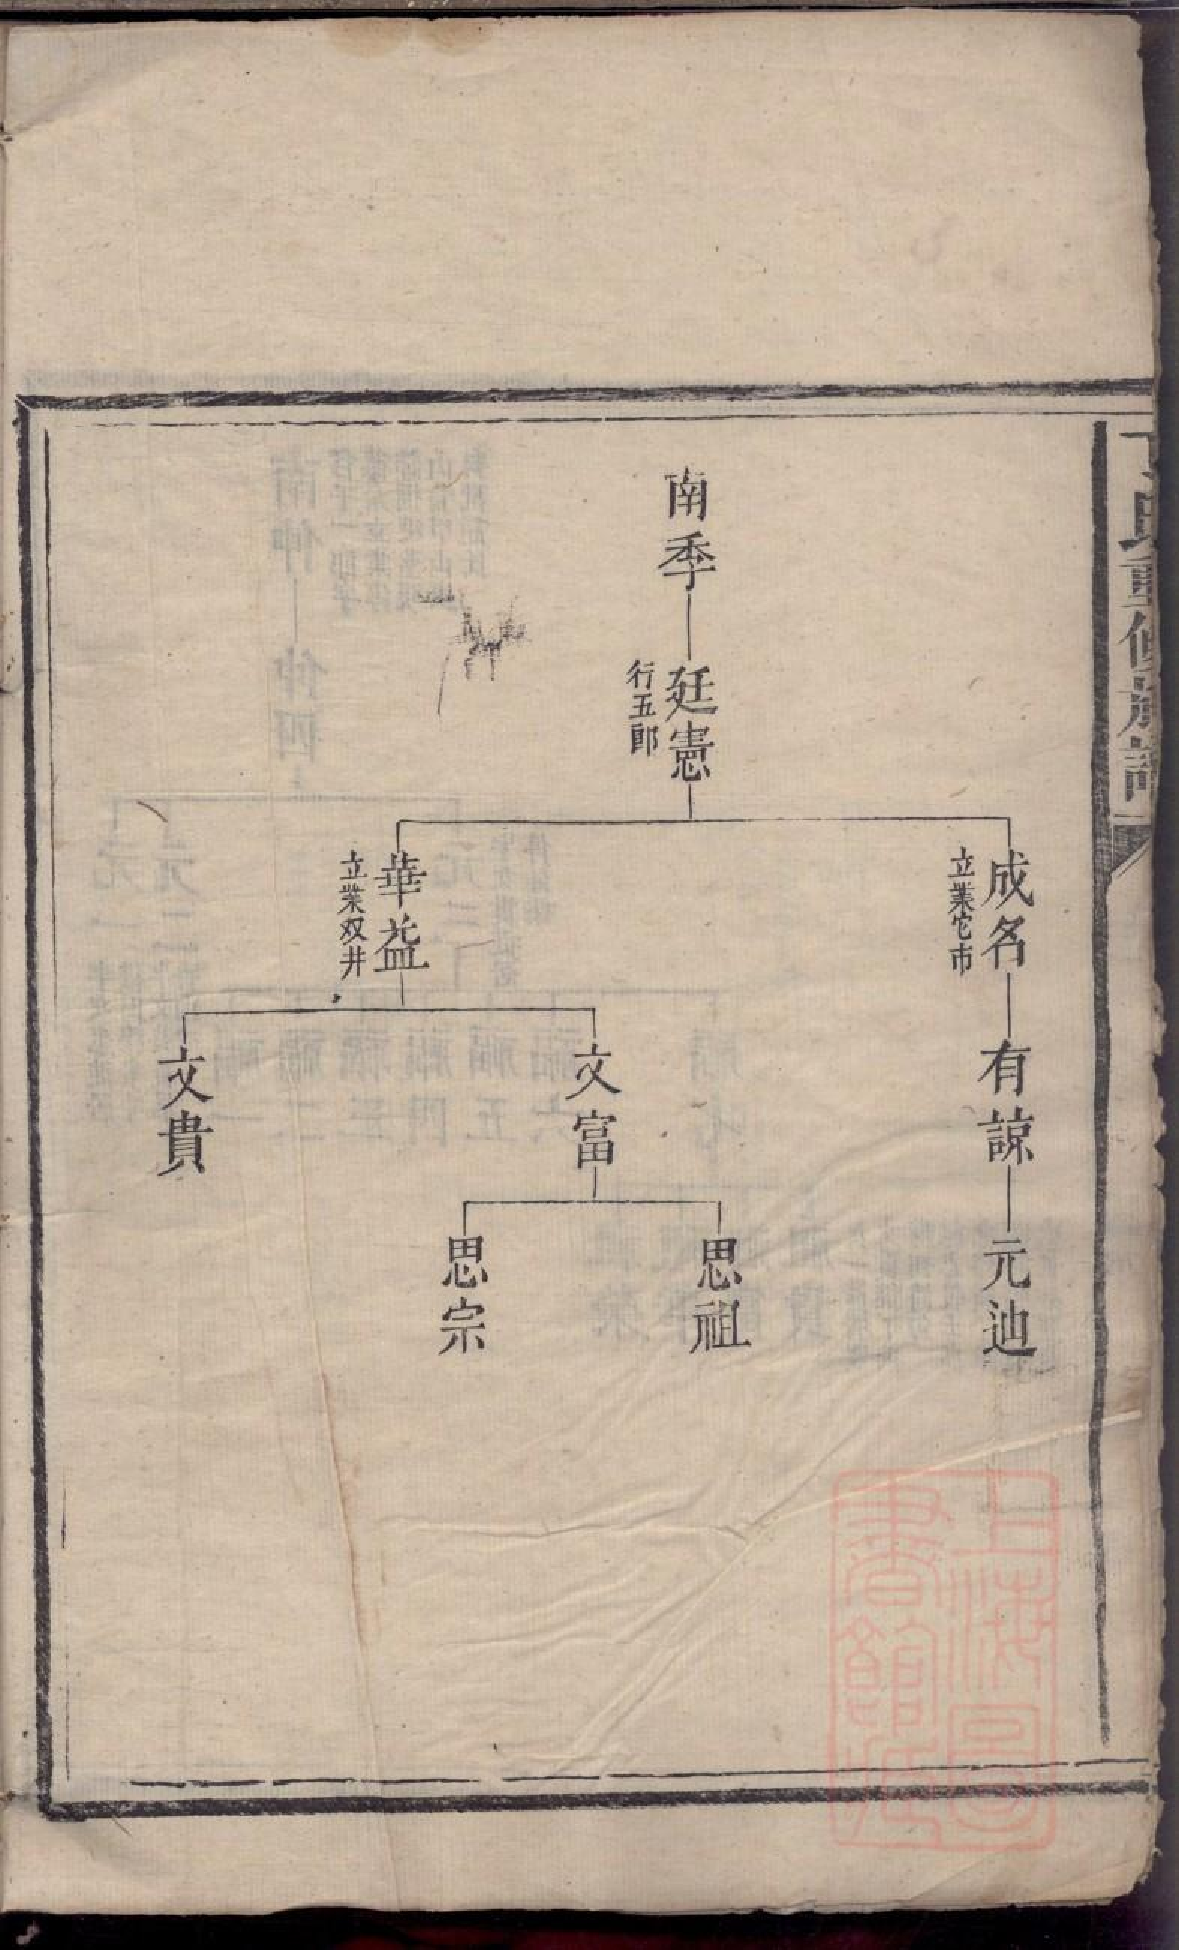 重修族譜
南季
廷憲
行五郎
成名
立業宅市
華益
立業双井
有諒
文富
文貴
元迪
思祖
思宗
上海圖
書館藏